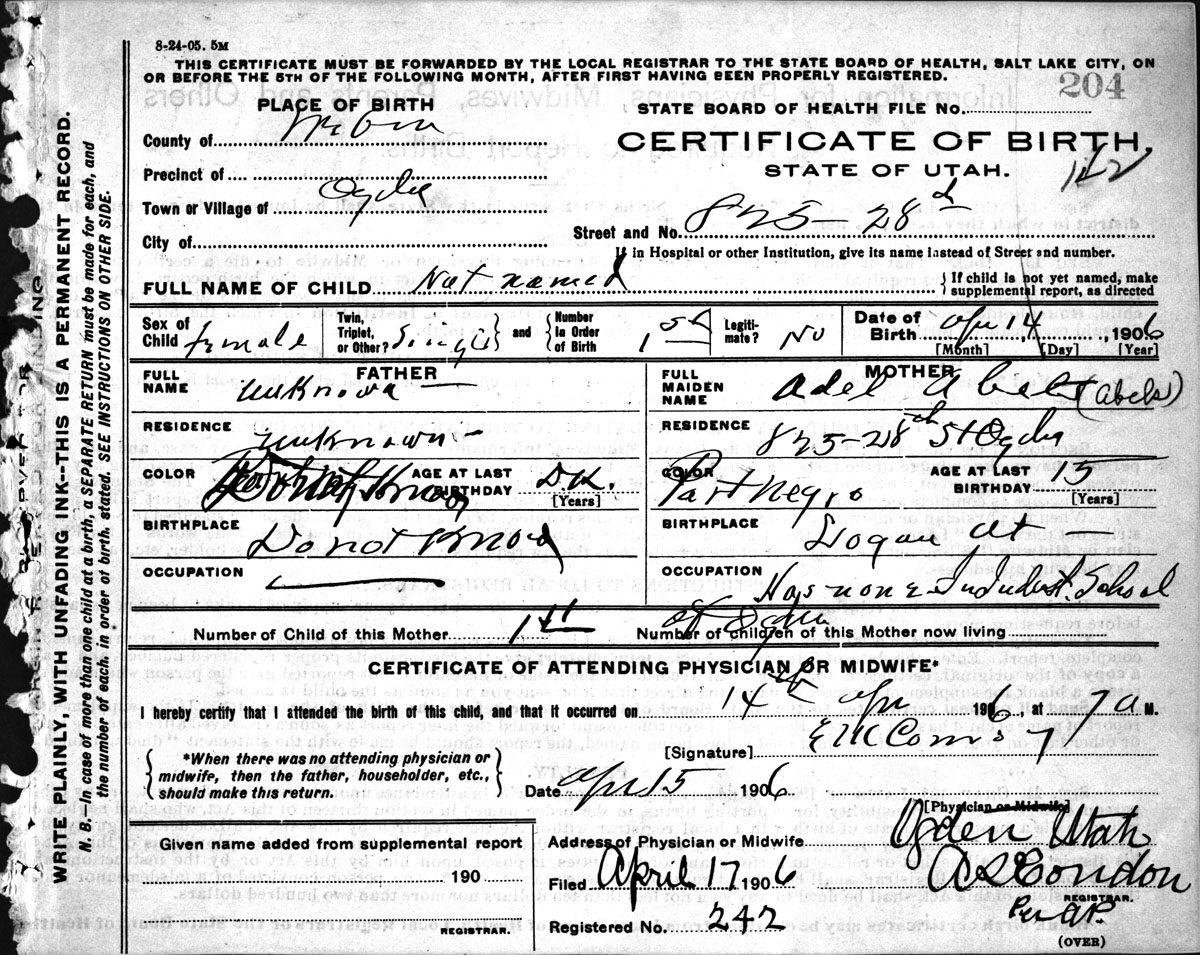 8-24-05. 5M
THIS CERTIFICATE MUST BE FORWARDED BY THE LOCAL REGISTRAR TO THE STATE BOARD OF HEALTH, SALT LAKE CITY, ON
OR BEFORE THE 5TH OF THE FOLLOWING MONTH, AFTER FIRST HAVING BEEN PROPERLY REGISTERED.
204
PLACE OF BIRTH
STATE BOARD OF HEALTH FILE No.
County of
CERTIFICATE OF BIRTH,
STATE OF UTAH.
Precinct of
Town or Village of Ogden
Street and No. 825-28th
City of
If in Hospital or other Institution, give its name instead of Street and number.
FULL NAME OF CHILD Not named
If child is not yet named, make
supplemental report, as directed
Sex of Child female
Twin, Triplet, or Other? Single
and
Number in Order of Birth 1st
Legiti-mate? No
Date of Birth Apr 14, 1906
[Month] [Day] [Year]
FATHER
FULL NAME unknown
RESIDENCE unknown
COLOR
AGE AT LAST BIRTHDAY D.K.
[Years]
BIRTHPLACE Do not Know
OCCUPATION
MOTHER
FULL MAIDEN NAME Adel Abels (Abels)
RESIDENCE 825-28th St Ogden
COLOR Part Negro
AGE AT LAST BIRTHDAY 15
[Years]
BIRTHPLACE Logan Ut
OCCUPATION Has none Industl. School
at Ogden
Number of Child of this Mother 1st
Number of children of this Mother now living
CERTIFICATE OF ATTENDING PHYSICIAN OR MIDWIFE*
I hereby certify that I attended the birth of this child, and that it occurred on 14th Apr 1906, at 7 a M.
[Signature]
*When there was no attending physician or
midwife, then the father, householder, etc.,
should make this return.
Date Apr 15 1906
[Physician or Midwife]
Given name added from supplemental report
190
REGISTRAR.
Address of Physician or Midwife Ogden Utah
Filed April 17 1906
A S Condon
REGISTRAR.
Per A.P.
Registered No. 242
(OVER)
WRITE PLAINLY, WITH UNFADING INK--THIS IS A PERMANENT RECORD.
N. B.—In case of more than one child at a birth, a SEPARATE RETURN must be made for each, and
the number of each, in order of birth, stated. SEE INSTRUCTIONS ON OTHER SIDE.
MARGIN RESERVED FOR BINDING